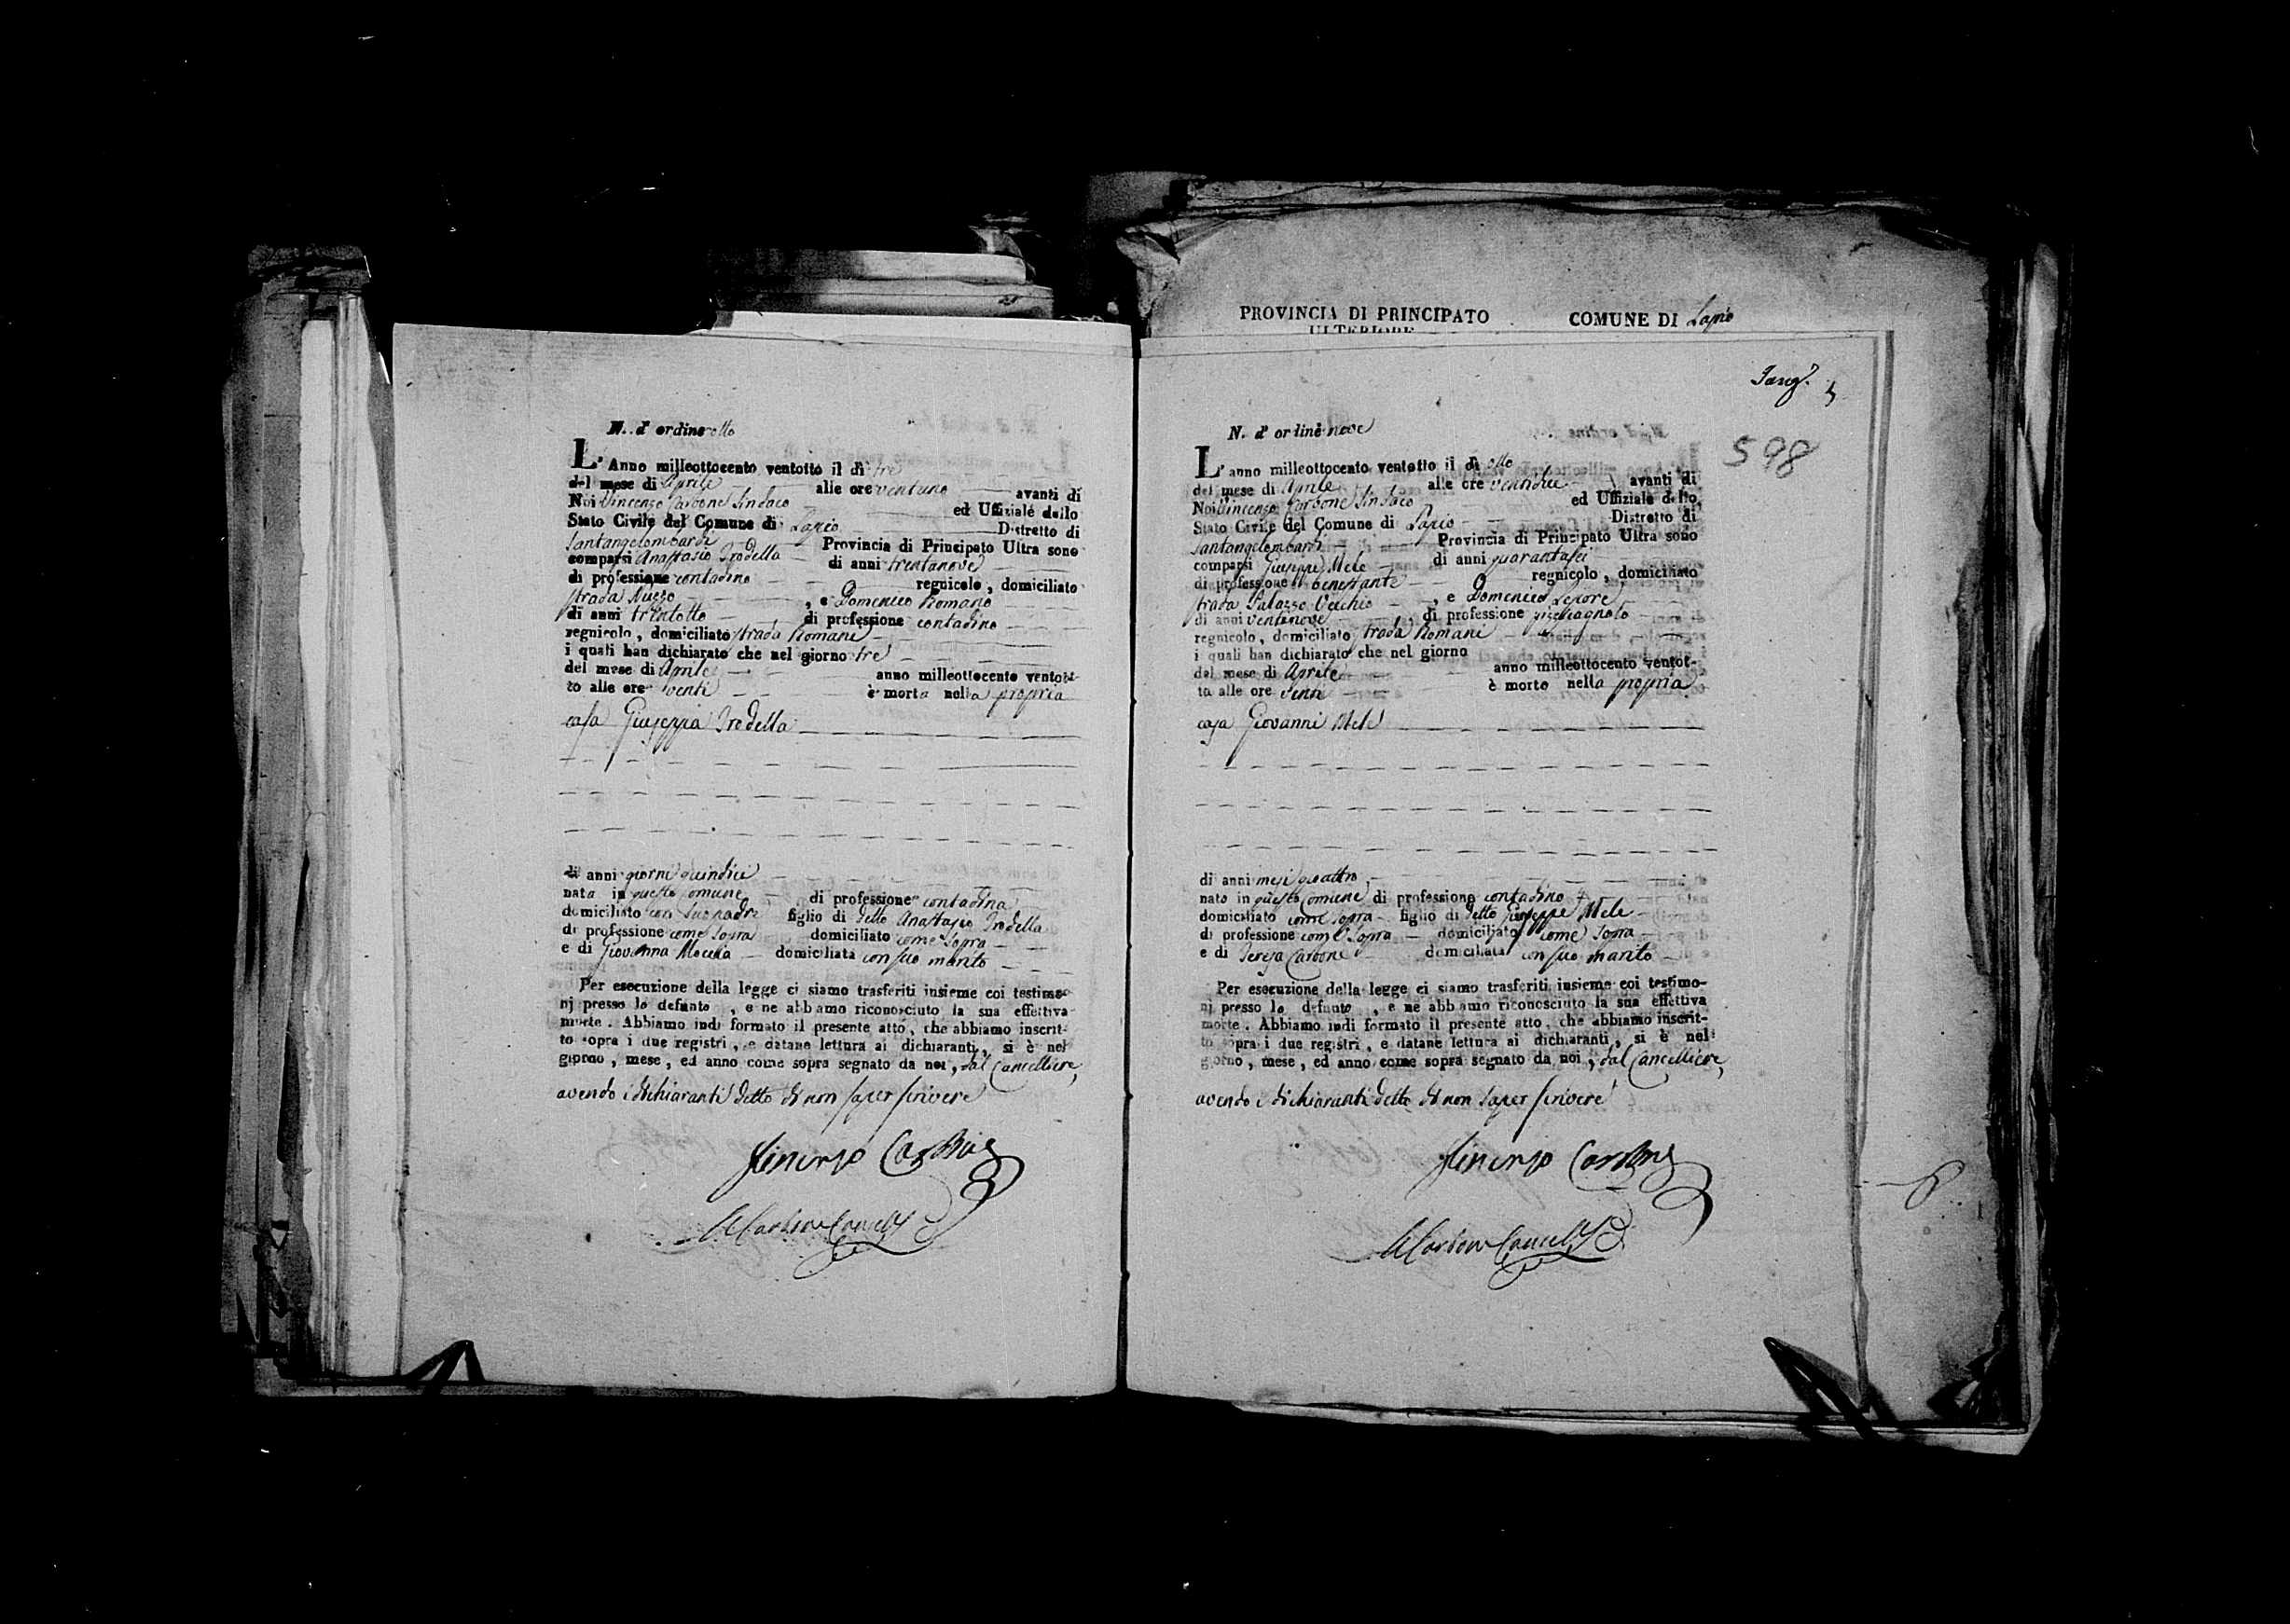 N. d' ordine otto
L' Anno milleottocento ventotto il dì tre
del mese di Aprile alle ore ventuno avanti di
Noi Vincenzo Carbone Sindaco ed Uffiziale dello
Stato Civile del Comune di Lapio Distretto di
Santangelombardi Provincia di Principato Ultra sono
comparsi Anastasio Trodella di anni trentanove
di professione contadino regnicolo, domiciliato
strada Nuzzo, e Domenico Romano
di anni trentotto di professione contadino
regnicolo, domiciliato strada Romani
i quali han dichiarato che nel giorno tre
del mese di Aprile anno milleottocento ventot-
to alle ore venti è morta nella propria
casa Giuseppia Trodella
di anni giorni quindici
nata in questo comune di professione contadina
domiciliato con suo padre figlio di detto Anastasio Trodella
di professione come sopra domiciliato come sopra
e di Giovanna Moccia domiciliata con suo marito
Per esecuzione della legge ci siamo trasferiti insieme coi testimo-
nj presso lo defunto, e ne abbamo riconosciuto la sua effettiva
morte. Abbiamo indi formato il presente atto, che abbiamo inscrit-
to sopra i due registri, e datane lettura ai dichiaranti, si è nel
giorno, mese, ed anno come sopra segnato da noi, dal Cancelliere,
avendo i dichiaranti detto di non saper scrivere
Vincenzo Carbone
Carbone Canc
PROVINCIA DI PRINCIPATO COMUNE DI Lapio
ULTERIORE
5
598
N. d' ordine nove
L' anno milleottocento ventotto il dì otto
del mese di Aprile alle ore ventidue avanti di
Noi Vincenzo Carbone Sindaco ed Uffiziale dello
Stato Civile del Comune di Lapio Distretto di
Santangelombardi Provincia di Principato Ultra sono
comparsi Giuseppe Mele di anni quarantasei
di professione benestante regnicolo, domiciliato
strada Palazzo Vecchio, e Domenico Lepore
di anni ventinove, di professione
regnicolo, domiciliato strada Romani
i quali han dichiarato che nel giorno
del mese di Aprile anno milleottocento ventot-
to alle ore venti è morto nella propria
casa Giovanni Mele
di anni mesi quattro
nato in questo Comune di professione contadino
domiciliato come sopra figlio di detto Giuseppe Mele
di professione come sopra domiciliato come sopra
e di Teresa Carbone domiciliata con suo marito
Per esecuzione della legge ci siamo trasferiti insieme coi testimo-
nj presso lo defunto, e ne abbamo riconosciuto la sua effettiva
morte. Abbiamo indi formato il presente atto, che abbiamo inscrit-
to sopra i due registri, e datane lettura ai dichiaranti, si è nel
giorno, mese, ed anno come sopra segnato da noi, dal Cancelliere,
avendo i dichiaranti detto di non saper scrivere
Vincenzo Carbone
Carbone Canc